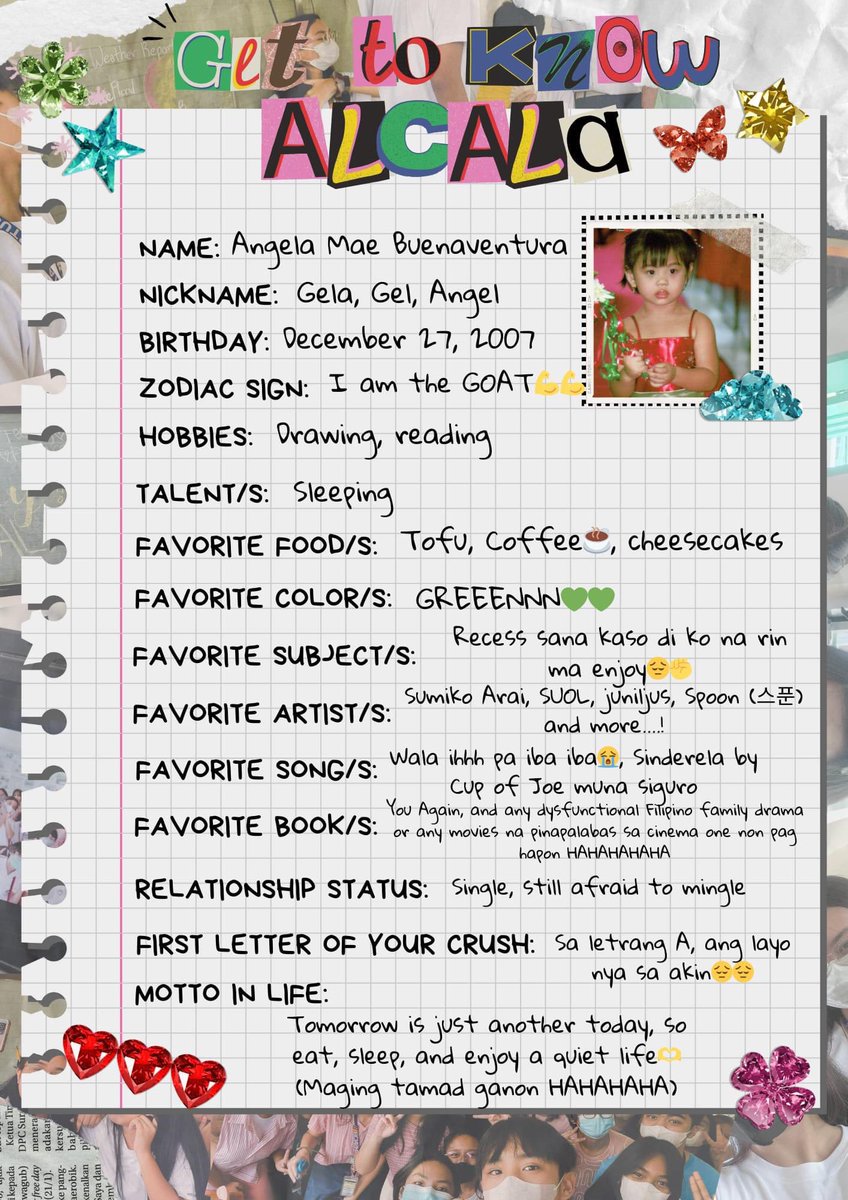 Get to KNOW
ALCALa
NAME: Angela Mae Buenaventura
NICKNAME: Gela, Gel, Angel
BIRTHDAY: December 27, 2007
ZODIAC SIGN: I am the GOAT💪💪
HOBBIES: Drawing, reading
TALENT/S: Sleeping
FAVORITE FOOD/S: Tofu, Coffee☕, cheesecakes
FAVORITE COLOR/S: GREEENNN💚💚
FAVORITE SUBJECT/S: Recess sana kaso di ko na rin
ma enjoy😔✊
FAVORITE ARTIST/S: Sumiko Arai, SUOL, juniljus, Spoon (스푼)
and more....!
FAVORITE SONG/S: Wala ihhh pa iba iba😭, Sinderela by
Cup of Joe muna siguro
FAVORITE BOOK/S: You Again, and any dysfunctional Filipino family drama
or any movies na pinapalabas sa cinema one non pag
hapon HAHAHAHAHA
RELATIONSHIP STATUS: Single, still afraid to mingle
FIRST LETTER OF YOUR CRUSH: Sa letrang A, ang layo
nya sa akin😔😔
MOTTO IN LIFE:
Tomorrow is just another today, so
eat, sleep, and enjoy a quiet life🫶
(Maging tamad ganon HAHAHAHA)